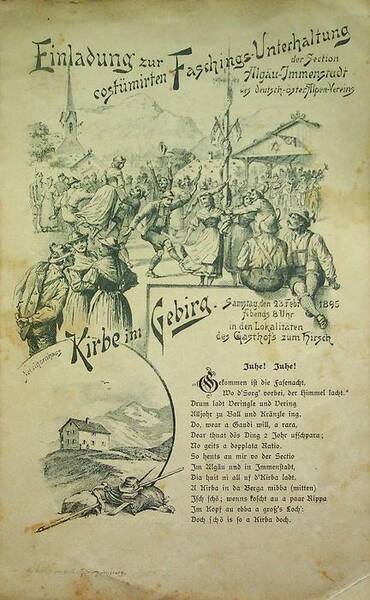 Einladung zur
costümirten Faschings-Unterhaltung
der Section
Algäu-Immenstadt
des deutsch-öster. Alpen-Vereins
Kirbe im Gebirg.
Samstag, den 23. Febr. 1895
Abends 8 Uhr
in den Lokalitäten
des Gasthofs zum Hirsch.
Juhe! Juhe!
„Gekommen ist die Fasenacht,
Wo d'Sorg' vorbei, der Himmel lacht.“
Drum ladt Veringle und Vering
Alljohr zu Ball und Kränzle ing.
Do, wear a Gaudi will, a rara,
Dear thuat dös Ding 2 Johr uffschpara;
No geits a dopplata Ratio.
So heuts au mir vo der Sectio
Im Algäu und in Immenstadt,
Dia hait ni all uf d'Kirba ladt.
A Kirba in da Berga mibba (mitten)
Isch schö; wenns koscht au a paar Rippa
Im Kopf au ebba a groß's Loch:
Doch schö is so a Kirba doch.